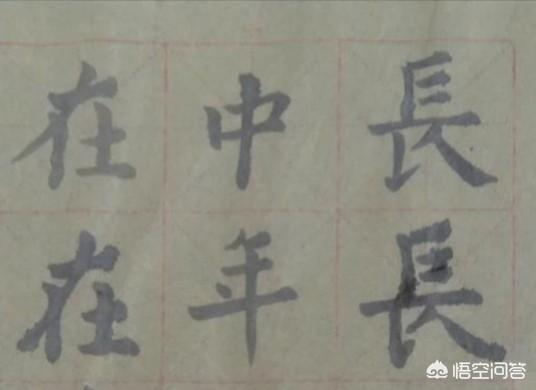 長長
中年
在在
悟空问答